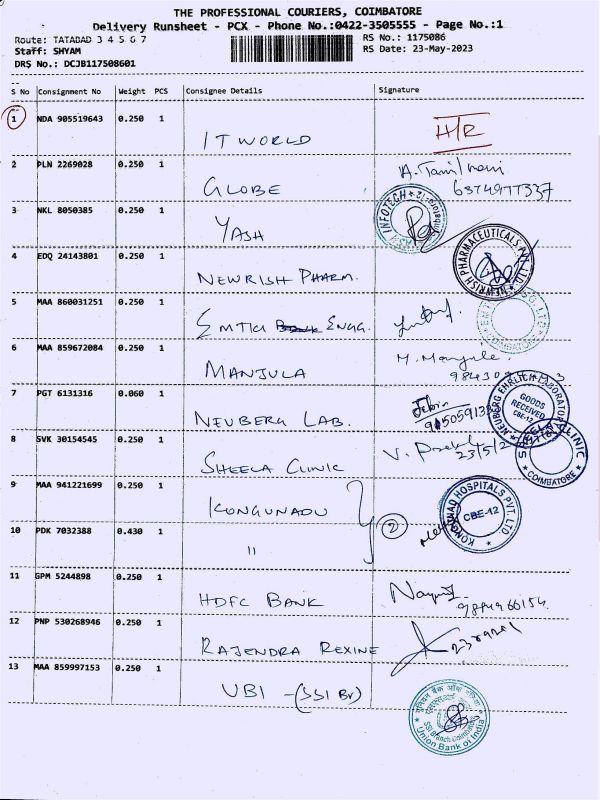 THE PROFESSIONAL COURIERS, COIMBATORE
Delivery Runsheet - PCX - Phone No.:0422-3505555 - Page No.:1
Route: TATABAD 3 4 5 6 7
RS No.: 1175086
Staff: SHYAM
RS Date: 23-May-2023
DRS No.: DCJB117508601
S No Consignment No Weight PCS Consignee Details Signature
1 NDA 905519643 0.250 1 IT WORLD
2 PLN 2269028 0.250 1 GLOBE 6374977337
3 NKL 8050385 0.250 1 YASH INFOTECH
4 EDQ 24143801 0.250 1 NEWRISH PHARM. NEWRISH PHARMACEUTICALS PVT. LTD.
5 MAA 860031251 0.250 1 ENGG.
COIMBATORE
6 MAA 859672084 0.250 1 MANJULA M. Manjula
7 PGT 6131316 0.060 1 NEUBERG LAB.
NEUBERG EHRLICH LABORATORY
GOODS RECEIVED CBE-12
8 SVK 30154545 0.250 1 SHEELA CLINIC 23/5/2
SHEELA CLINIC COIMBATORE
9 MAA 941221699 0.250 1 KONGUNADU
2
KONGUNAD HOSPITALS PVT. LTD. CBE-12
10 PDK 7032388 0.430 1 "
11 GPM 5244898 0.250 1 HDFC BANK
12 PNP 530268946 0.250 1 RAJENDRA REXINE
13 MAA 859997153 0.250 1 UBI - (SSI Br)
यूनियन बैंक ऑफ इंडिया
SSI Branch, Coimbatore
Union Bank of India